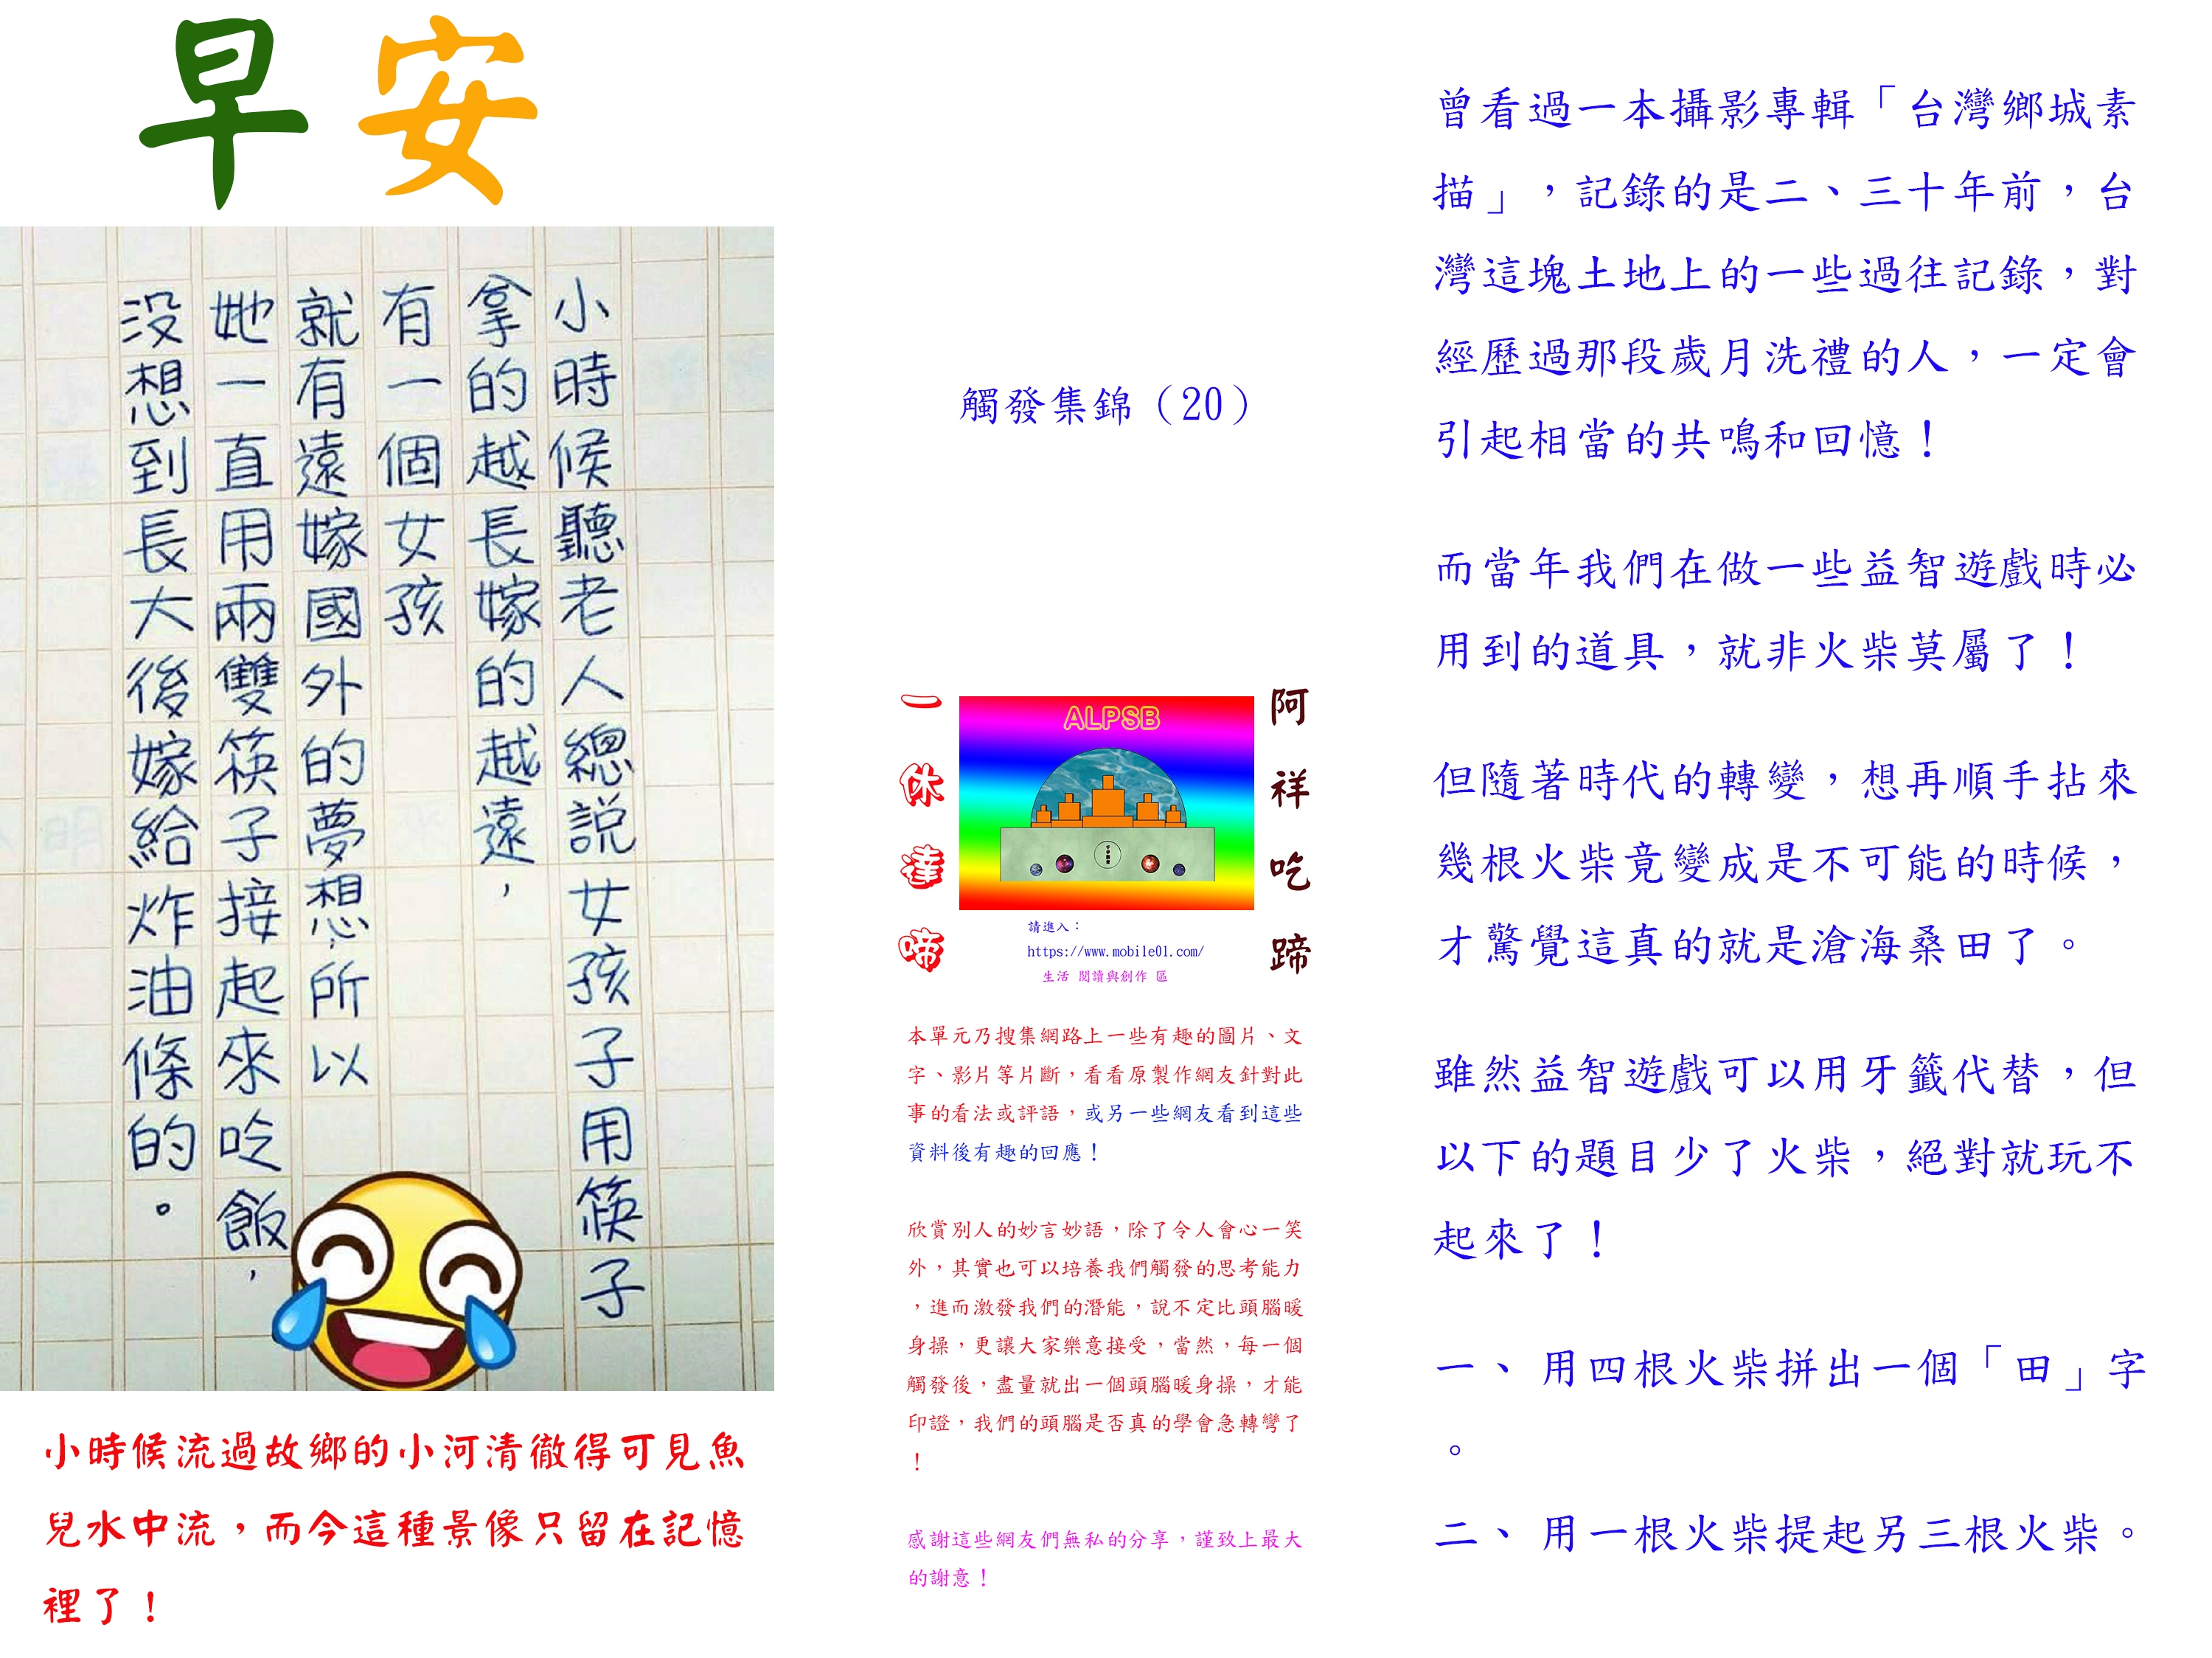 早安
小時候聽老人總說女孩子用筷子
拿的越長嫁的越遠，
有一個女孩
就有遠嫁國外的夢想，所以
她一直用兩雙筷子接起來吃飯，
没想到長大後嫁給炸油條的。
小時候流過故鄉的小河清徹得可見魚
兒水中流，而今這種景像只留在記憶
裡了！
觸發集錦（20）
阿祥吃蹄
一休達啼
ALPSB
請進入：
https://www.mobile01.com/
生活 閱讀與創作 區
本單元乃搜集網路上一些有趣的圖片、文
字、影片等片斷，看看原製作網友針對此
事的看法或評語，或另一些網友看到這些
資料後有趣的回應！
欣賞別人的妙言妙語，除了令人會心一笑
外，其實也可以培養我們觸發的思考能力
，進而激發我們的潛能，說不定比頭腦暖
身操，更讓大家樂意接受，當然，每一個
觸發後，盡量就出一個頭腦暖身操，才能
印證，我們的頭腦是否真的學會急轉彎了
！
感謝這些網友們無私的分享，謹致上最大
的謝意！
曾看過一本攝影專輯「台灣鄉城素
描」，記錄的是二、三十年前，台
灣這塊土地上的一些過往記錄，對
經歷過那段歲月洗禮的人，一定會
引起相當的共鳴和回憶！
而當年我們在做一些益智遊戲時必
用到的道具，就非火柴莫屬了！
但隨著時代的轉變，想再順手拈來
幾根火柴竟變成是不可能的時候，
才驚覺這真的就是滄海桑田了。
雖然益智遊戲可以用牙籤代替，但
以下的題目少了火柴，絕對就玩不
起來了！
一、 用四根火柴拼出一個「田」字
。
二、 用一根火柴提起另三根火柴。